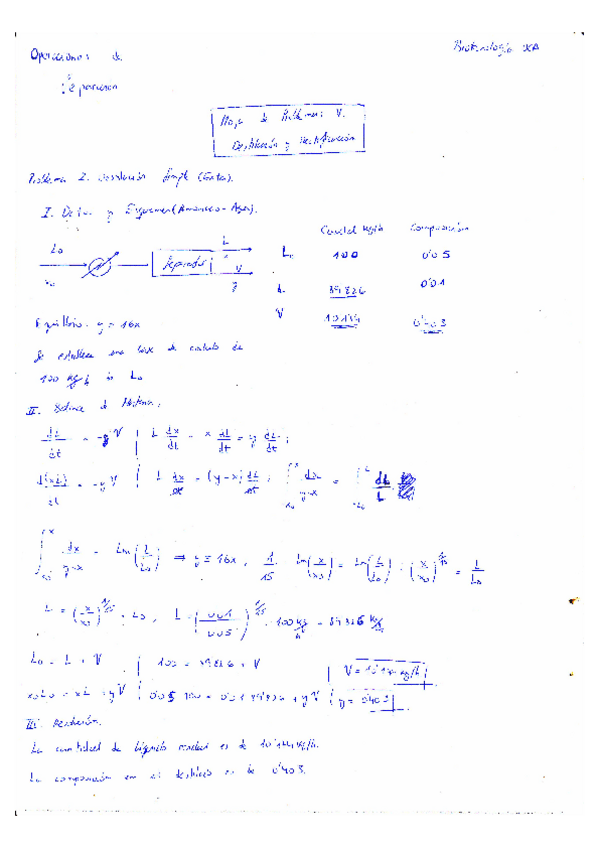 Operaciones de
Separación
Biotecnología
Hoja de Problemas V.
Destilación y Rectificación
Problema 2. Destilación Simple
I. Datos y Esquema (Amoniaco-Agua).
Caudal kg/h Composición
L₀ 100 0'05
L 89'826 0'01
V 10'174 0'403
L₀
x₀
Separador
L
x
V
y
Equilibrio: y = 16x
Se establece una base de cálculo de
100 kg/h de L₀
II. Balance de Materia:
dL/dt = -V | L dx/dt + x dL/dt = y dL/dt;
d(xL)/dt = -yV | L dx/dt = (y-x) dL/dt; ∫ dx/y-x = ∫ dL/L
∫ dx/y-x = Ln(L/L₀) ⇒ y = 16x, 1/15 Ln(x/x₀) = Ln(L/L₀); (x/x₀)^1/15 = L/L₀
L = (x/x₀)^1/15 · L₀, L = (0'01/0'05)^1/15 · 100 kg/h = 89'826 kg/h
L₀ = L + V | 100 = 89'826 + V | V = 10'174 kg/h
x₀L₀ = xL + yV | 0'05 · 100 = 0'01 · 89'826 + yV | y = 0'403
III. Resolución.
La cantidad de líquido es de 10'174 kg/h.
La composición en el destilado es de 0'403.